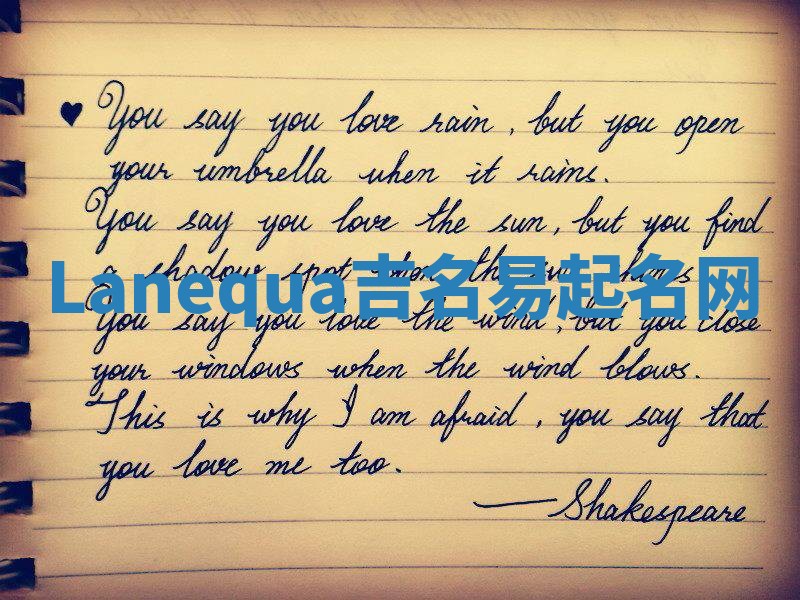 ♥ You say you love rain, but you open
your umbrella when it rains.
You say you love the sun, but you find
a shadow spot when the sun shines
Lanequa吉名易起名网
You say you love the wind, but you close
your windows when the wind blows.
This is why I am afraid, you say that
you love me too.
—Shakespeare